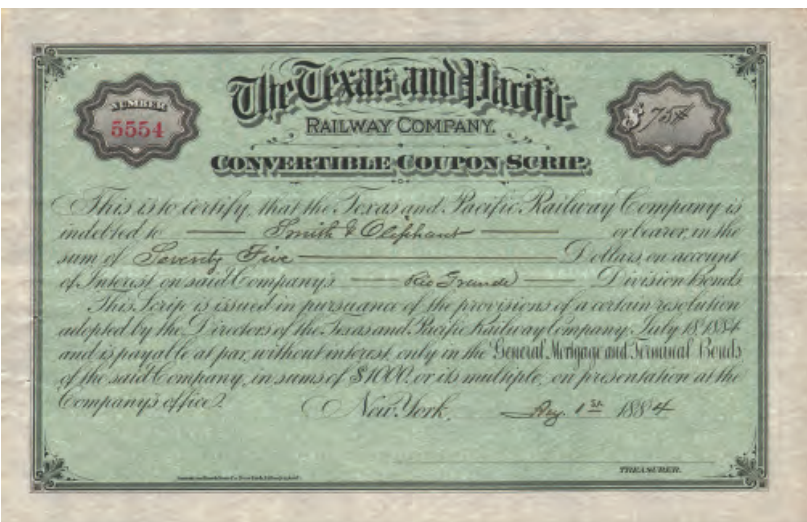 The Texas and Pacific
NUMBER
5554
$ 75
RAILWAY COMPANY.
CONVERTIBLE COUPON SCRIP.
This is to certify, that the Texas and Pacific Railway Company is
indebted to Smith & Oliphant or bearer, in the
sum of Seventy Five Dollars, on account
of Interest on said Company's Rio Grande Division Bonds
This Scrip is issued in pursuance of the provisions of a certain resolution
adopted by the Directors of the Texas and Pacific Railway Company, July 18, 1884
and is payable at par, without interest, only in the General Mortgage and Terminal Bonds
of the said Company, in sums of $1000. or its multiple, on presentation at the
Company's office.
New York, Aug. 1st 1884
TREASURER.